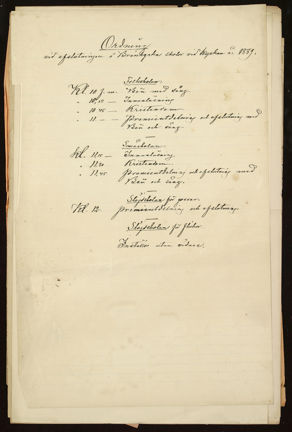 Ordning
vid afslutningen i Brännkyrka skolor vid kyrkan år 1889.
Folkskolan.
Kl. 10 f.m. Bön med sång.
" 10,10 — Innanläsning.
" 10,45 — Kristendom
" 11 — — Premieutdelning och afslutning med
Bön och sång.
Småskolan.
Kl. 11,10 — Innanläsning.
" 11,30 Kristendom.
" 11,45 Premieutdelning och afslutning med
Bön och sång.
Slöjdskolan för gossar.
Kl 12. Premieutdelning och afslutning.
Slöjdskolan för flickor
Inställes utan vidare.